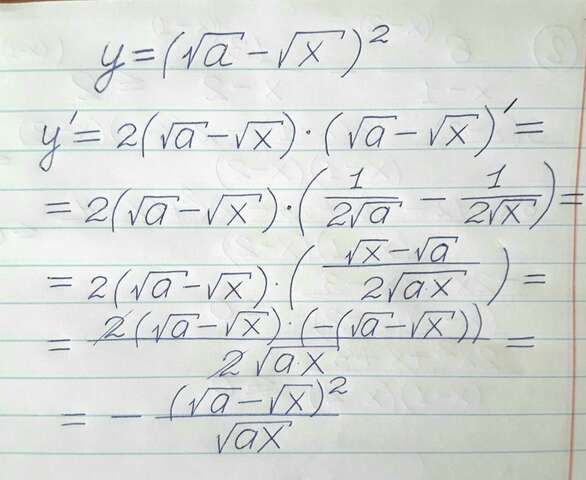 y = (√a - √x)²
y' = 2(√a - √x) · (√a - √x)' =
= 2(√a - √x) · (1/(2√a) - 1/(2√x)) =
= 2(√a - √x) · ((√x - √a)/(2√ax)) =
= (2(√a - √x) · (-(√a - √x)))/(2√ax) =
= - (√a - √x)²/√ax